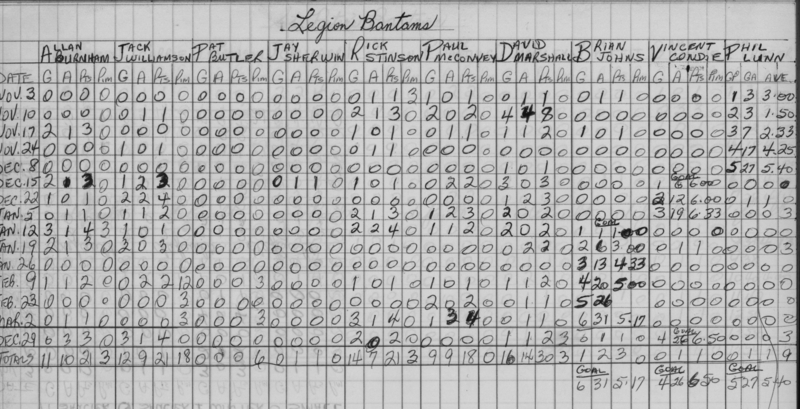 Legion Bantams
ALLAN BURNHAM JACK WILLIAMSON PAT BUTLER JAY SHERWIN RICK STINSON PAUL McCONVEY DAVID MARSHALL BRIAN JOHNS VINCENT CONDIE PHIL LUNN
DATE G A Pts Pim G A Pts Pim G A Pts Pim G A Pts Pim G A Pts Pim G A Pts Pim G A Pts Pim G A Pts Pim G A Pts Pim GP GA AVE.
NOV. 3 0 0 0 0 0 0 0 0 0 0 0 0 0 0 0 0 0 1 1 3 1 0 1 0 0 1 1 0 0 1 1 0 0 0 0 0 1 3 3.00
NOV. 10 0 0 0 0 0 1 1 0 0 0 0 0 0 0 0 0 2 1 3 0 2 0 2 0 4 4 8 0 0 0 0 0 0 0 0 0 2 3 1.50
NOV. 17 2 1 3 0 0 0 0 0 0 0 0 0 0 0 0 0 1 0 1 0 0 1 1 0 1 1 2 0 1 0 1 0 0 0 0 0 3 7 2.33
NOV. 24 0 0 0 0 1 0 1 0 0 0 0 0 0 0 0 0 0 0 0 0 0 0 0 0 0 0 0 0 0 0 0 0 0 0 0 0 4 17 4.25
DEC. 8 0 0 0 0 0 0 0 0 0 0 0 0 0 0 0 0 0 0 0 0 0 0 0 0 1 0 1 0 0 0 0 0 0 0 0 0 5 27 5.40
DEC. 15 2 3 0 1 2 3 0 0 0 0 0 0 1 1 0 1 0 1 0 0 2 2 0 3 0 3 0 0 0 0 0 1 GOAL 6 6.00 0 0 0 0
DEC. 22 1 0 1 0 2 2 4 0 0 0 0 0 0 0 0 0 0 0 0 0 0 0 0 0 1 2 3 0 0 0 0 0 2 12 6.00 0 1 1 0
JAN. 5 0 1 1 0 1 1 2 0 0 0 0 0 0 0 0 2 1 3 0 1 2 3 0 2 0 2 0 0 0 0 0 3 19 6.33 0 0 0 3
JAN. 12 3 1 4 3 1 0 1 0 0 0 0 0 0 0 0 0 2 2 4 0 1 1 2 0 2 0 2 0 1 GOAL 1 0 0 0 0 0 0 0 0
JAN. 19 2 1 3 0 2 0 3 0 0 0 0 0 0 0 0 0 0 0 0 0 0 0 0 0 2 2 0 2 6 3.00 0 1 1 0 0 0 0 3
JAN. 26 0 0 0 0 0 0 0 0 0 0 0 0 0 0 0 0 0 0 0 0 0 0 0 0 0 0 0 0 3 13 4.33 0 0 0 0 0 0 0 0
FEB. 9 1 1 2 0 0 2 2 12 0 0 0 3 0 0 0 0 1 0 1 0 1 0 1 0 0 1 1 2 0 4 20 5.00 0 0 0 0 0 0 0 0
FEB. 23 0 0 0 0 0 0 0 3 0 0 0 0 0 0 0 0 0 0 0 0 2 0 2 0 0 1 1 0 5 26 0 0 0 0 0 0 0 0
MAR. 2 0 1 1 0 0 0 0 3 0 0 0 3 0 0 0 0 3 1 4 0 1 3 4 0 0 1 1 0 6 31 5.17 0 0 0 0 0 0 0
DEC. 29 0 3 3 0 3 1 4 0 0 0 0 0 0 0 0 0 2 0 2 0 0 0 0 0 1 1 2 3 0 1 1 0 4 GOAL 26 6.50 0 0 0 3
TOTALS 11 10 21 3 12 9 21 18 0 0 0 6 0 1 1 0 14 7 21 3 9 9 18 0 16 14 30 3 1 2 3 0 0 1 1 0 0 1 1 9
GOAL 6 31 5.17 GOAL 4 26 6.50 GOAL 5 27 5.40